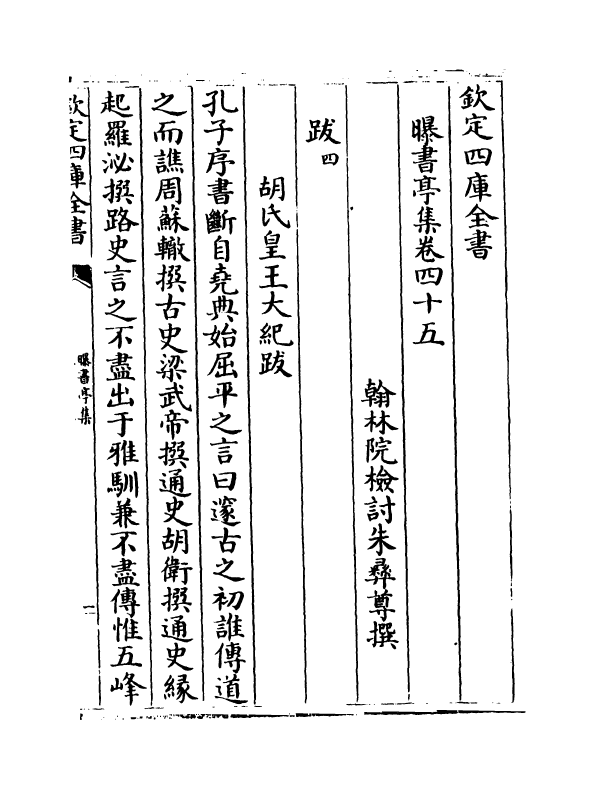 欽定四庫全書
曝書亭集卷四十五
翰林院檢討朱彝尊撰
跋四
胡氏皇王大紀跋
孔子序書斷自堯典始屈平之言曰邃古之初誰傳道
之而譙周蘇轍撰古史梁武帝撰通史胡衛撰通史緣
起羅泌撰路史言之不盡出于雅馴兼不盡傳惟五峰
欽定四庫全書
曝書亭集
一